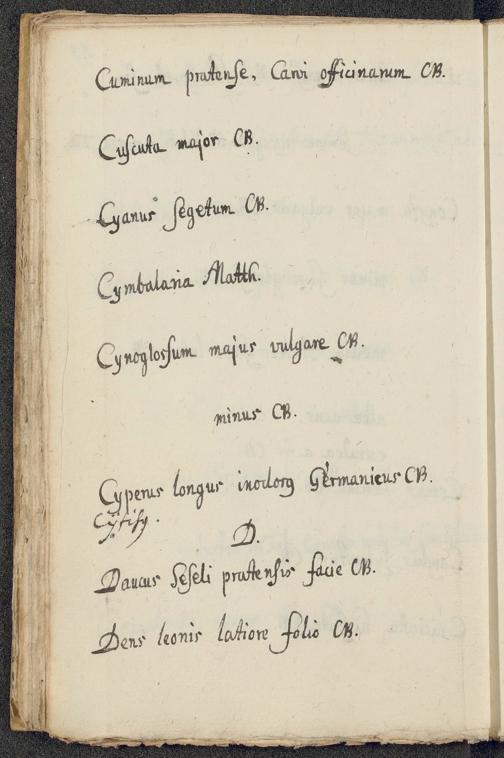 Cuminum pratense, Carvi officinarum CB.
Cuscuta major CB.
Cyanus segetum CB.
Cymbalaria Matth.
Cynoglossum majus vulgare CB.
minus CB.
Cyperus longus inodorg Germanicus CB.
Cytisg.
D.
Daucus Seseli pratensis facie CB.
Dens leonis latiore folio CB.